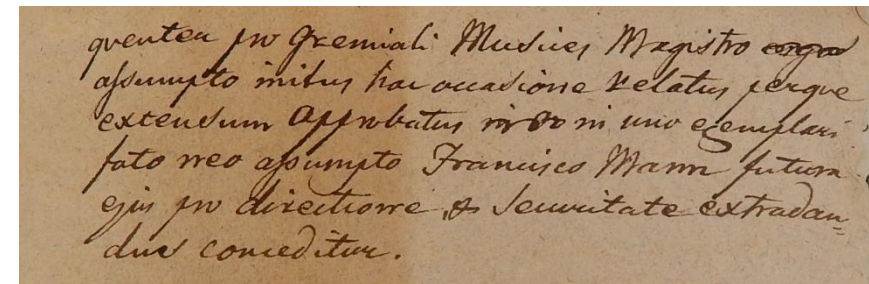 quenter pro Gremiali Musices Magistro
assumpto initus hac occasione relatus perque
extensum Approbatus in uno exemplari
fato neo assumpto Francisco Mann futura
ejus pro directione & Securitate extradan=
dus conceditur.